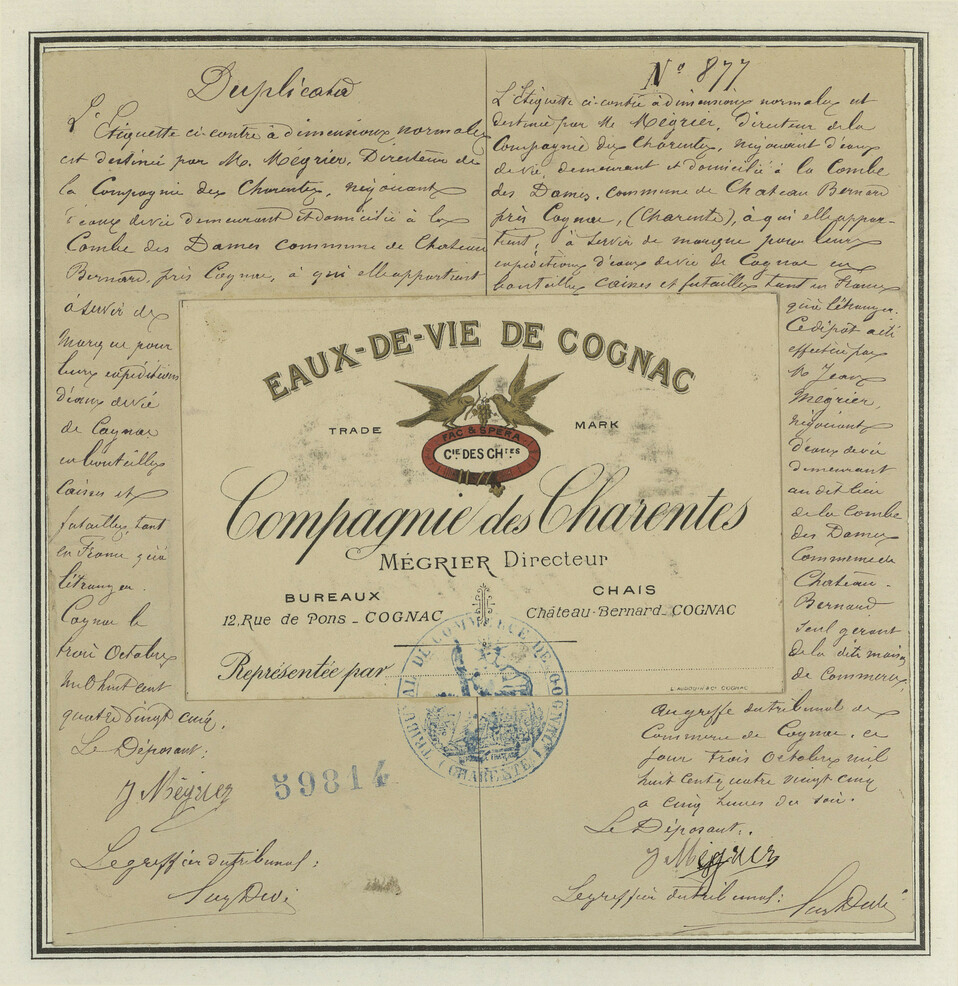 Duplicata
L'Etiquette ci-contre à dimensions normales
est destinée par M. Mégrier, Directeur de
la Compagnie des Charentes, négociant
d'eaux de vie demeurant et domicilié à la
Combe des Dames commune de Chateau
Bernard, près Cognac, à qui elle appartient
à servir de
marque pour
leurs expéditions
d'eaux de vie
de Cognac
en bouteilles
caisses et
futailles, tant
en France qu'à
l'étranger.
Cognac le
trois Octobre
mil huit cent
quatre vingt cinq.
Le Déposant:
J Mégrier
Le greffier du tribunal:
59814
N° 877
L'Etiquette ci-contre à dimensions normales est
destinée par Mr Mégrier, directeur de la
Compagnie des Charentes, négociant d'eaux
de vie, demeurant et domicilié à la Combe
des Dames, commune de Chateau Bernard
près Cognac, (Charente), à qui elle appar-
tient, à servir de marque pour leurs
expéditions d'eaux de vie de Cognac en
bouteilles caisses et futailles tant en France
qu'à l'étranger.
Ce dépôt a été
effectué par
Mr Jean
Mégrier,
négociant
d'eaux de vie
demeurant
au dit lieu
de la Combe
des Dames
Commune de
Chateau-
Bernard
seul gérant
de la dite maison
de commerce,
au greffe du tribunal de
Commerce de Cognac, ce
jour trois Octobre mil
huit cent quatre vingt cinq
à cinq heures du soir.
Le Déposant:
J Mégrier
Le greffier du tribunal:
EAUX-DE-VIE DE COGNAC
TRADE MARK
FAC & SPERA
CIE DES CHTES
Compagnie des Charentes
MÉGRIER Directeur
BUREAUX
12, Rue de Pons _ COGNAC
CHAIS
Château-Bernard _ COGNAC
Représentée par
TRIBUNAL DE COMMERCE DE COGNAC
(CHARENTE)